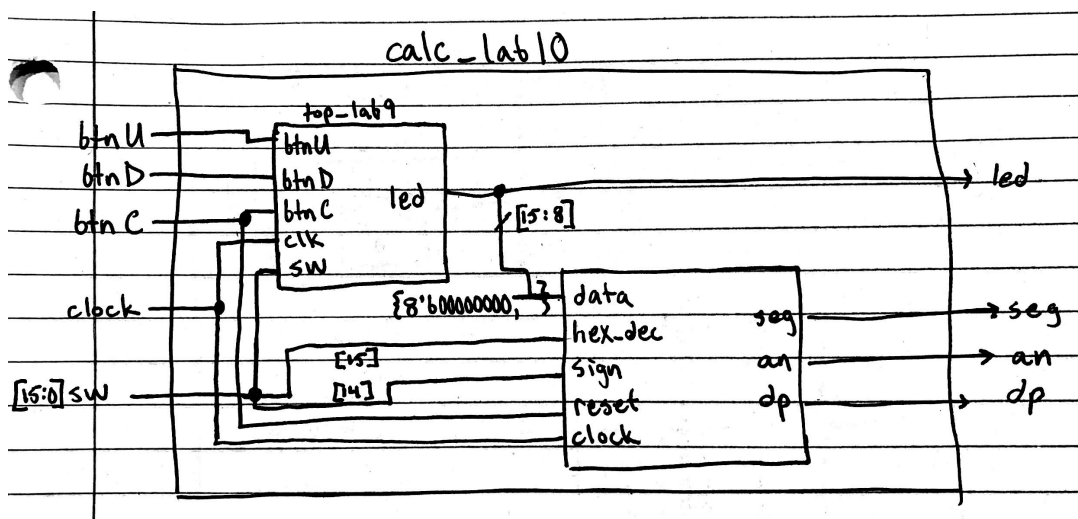 calc_lab10
top_lab9
btnU
btnD
btnC
clock
[15:0] sw
btnU
btnD
btnC
clk
sw
led
[15:8]
{8'b00000000, }
[15]
[14]
data
hex_dec
sign
reset
clock
seg
an
dp
led
seg
an
dp